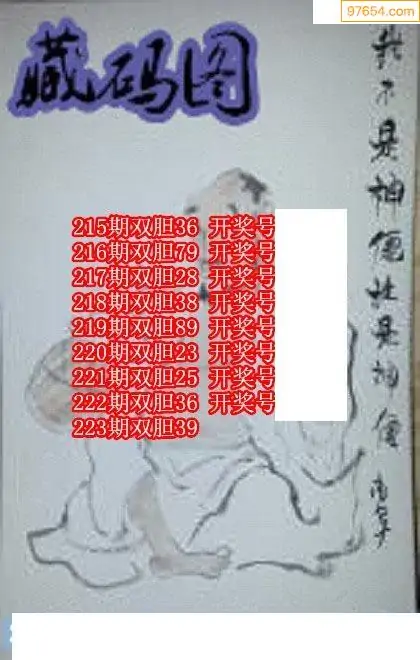 97654.com
藏码图
我不是神僊 是神僊
215期双胆36 开奖号
216期双胆79 开奖号
217期双胆28 开奖号
218期双胆38 开奖号
219期双胆89 开奖号
220期双胆23 开奖号
221期双胆25 开奖号
222期双胆36 开奖号
223期双胆39